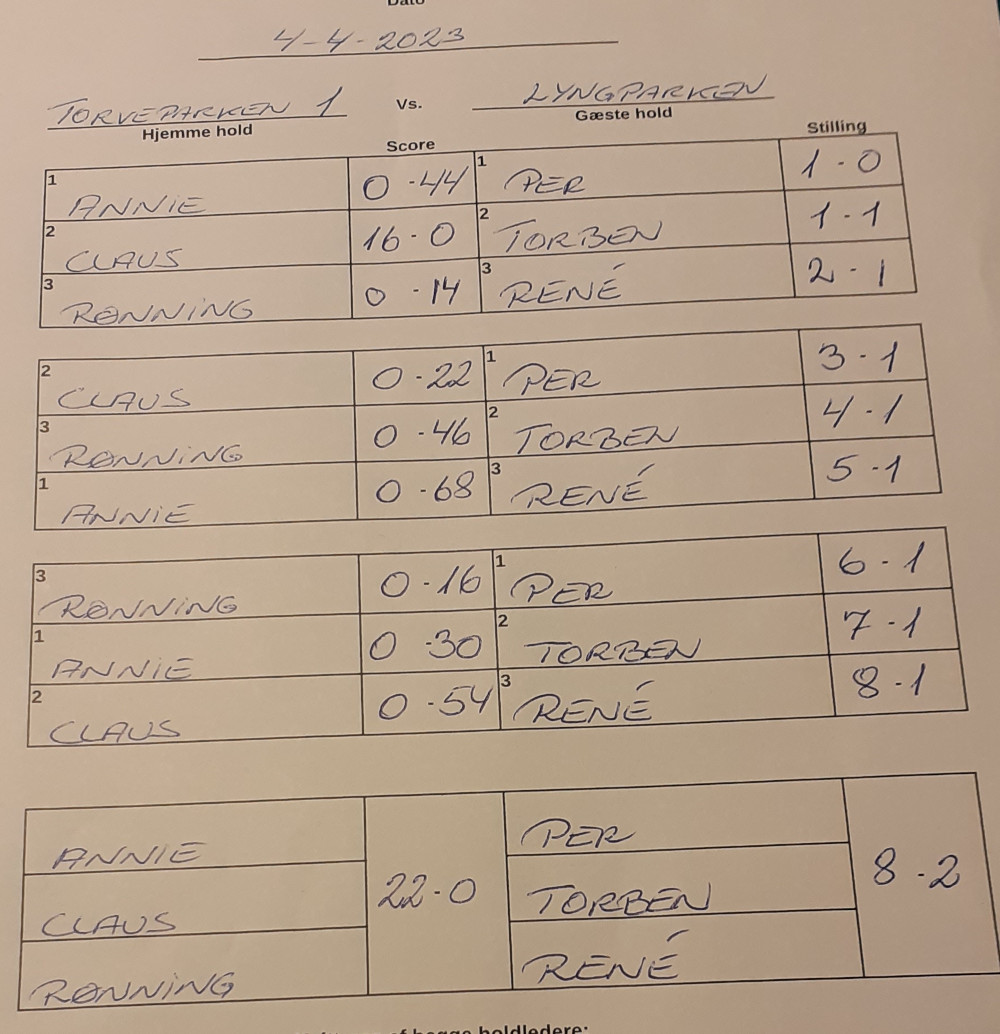 Dato
4-4-2023
TORVEPARKEN 1 Vs. LYNGPARKEN
Hjemme hold Gæste hold
Score Stilling
1 ANNIE 0-44 1 PER 1-0
2 CLAUS 16-0 2 TORBEN 1-1
3 RØNNING 0-14 3 RENÉ 2-1
2 CLAUS 0-22 1 PER 3-1
3 RØNNING 0-46 2 TORBEN 4-1
1 ANNIE 0-68 3 RENÉ 5-1
3 RØNNING 0-16 1 PER 6-1
1 ANNIE 0-30 2 TORBEN 7-1
2 CLAUS 0-54 3 RENÉ 8-1
ANNIE PER
CLAUS 22-0 TORBEN 8-2
RØNNING RENÉ
af begge holdledere: